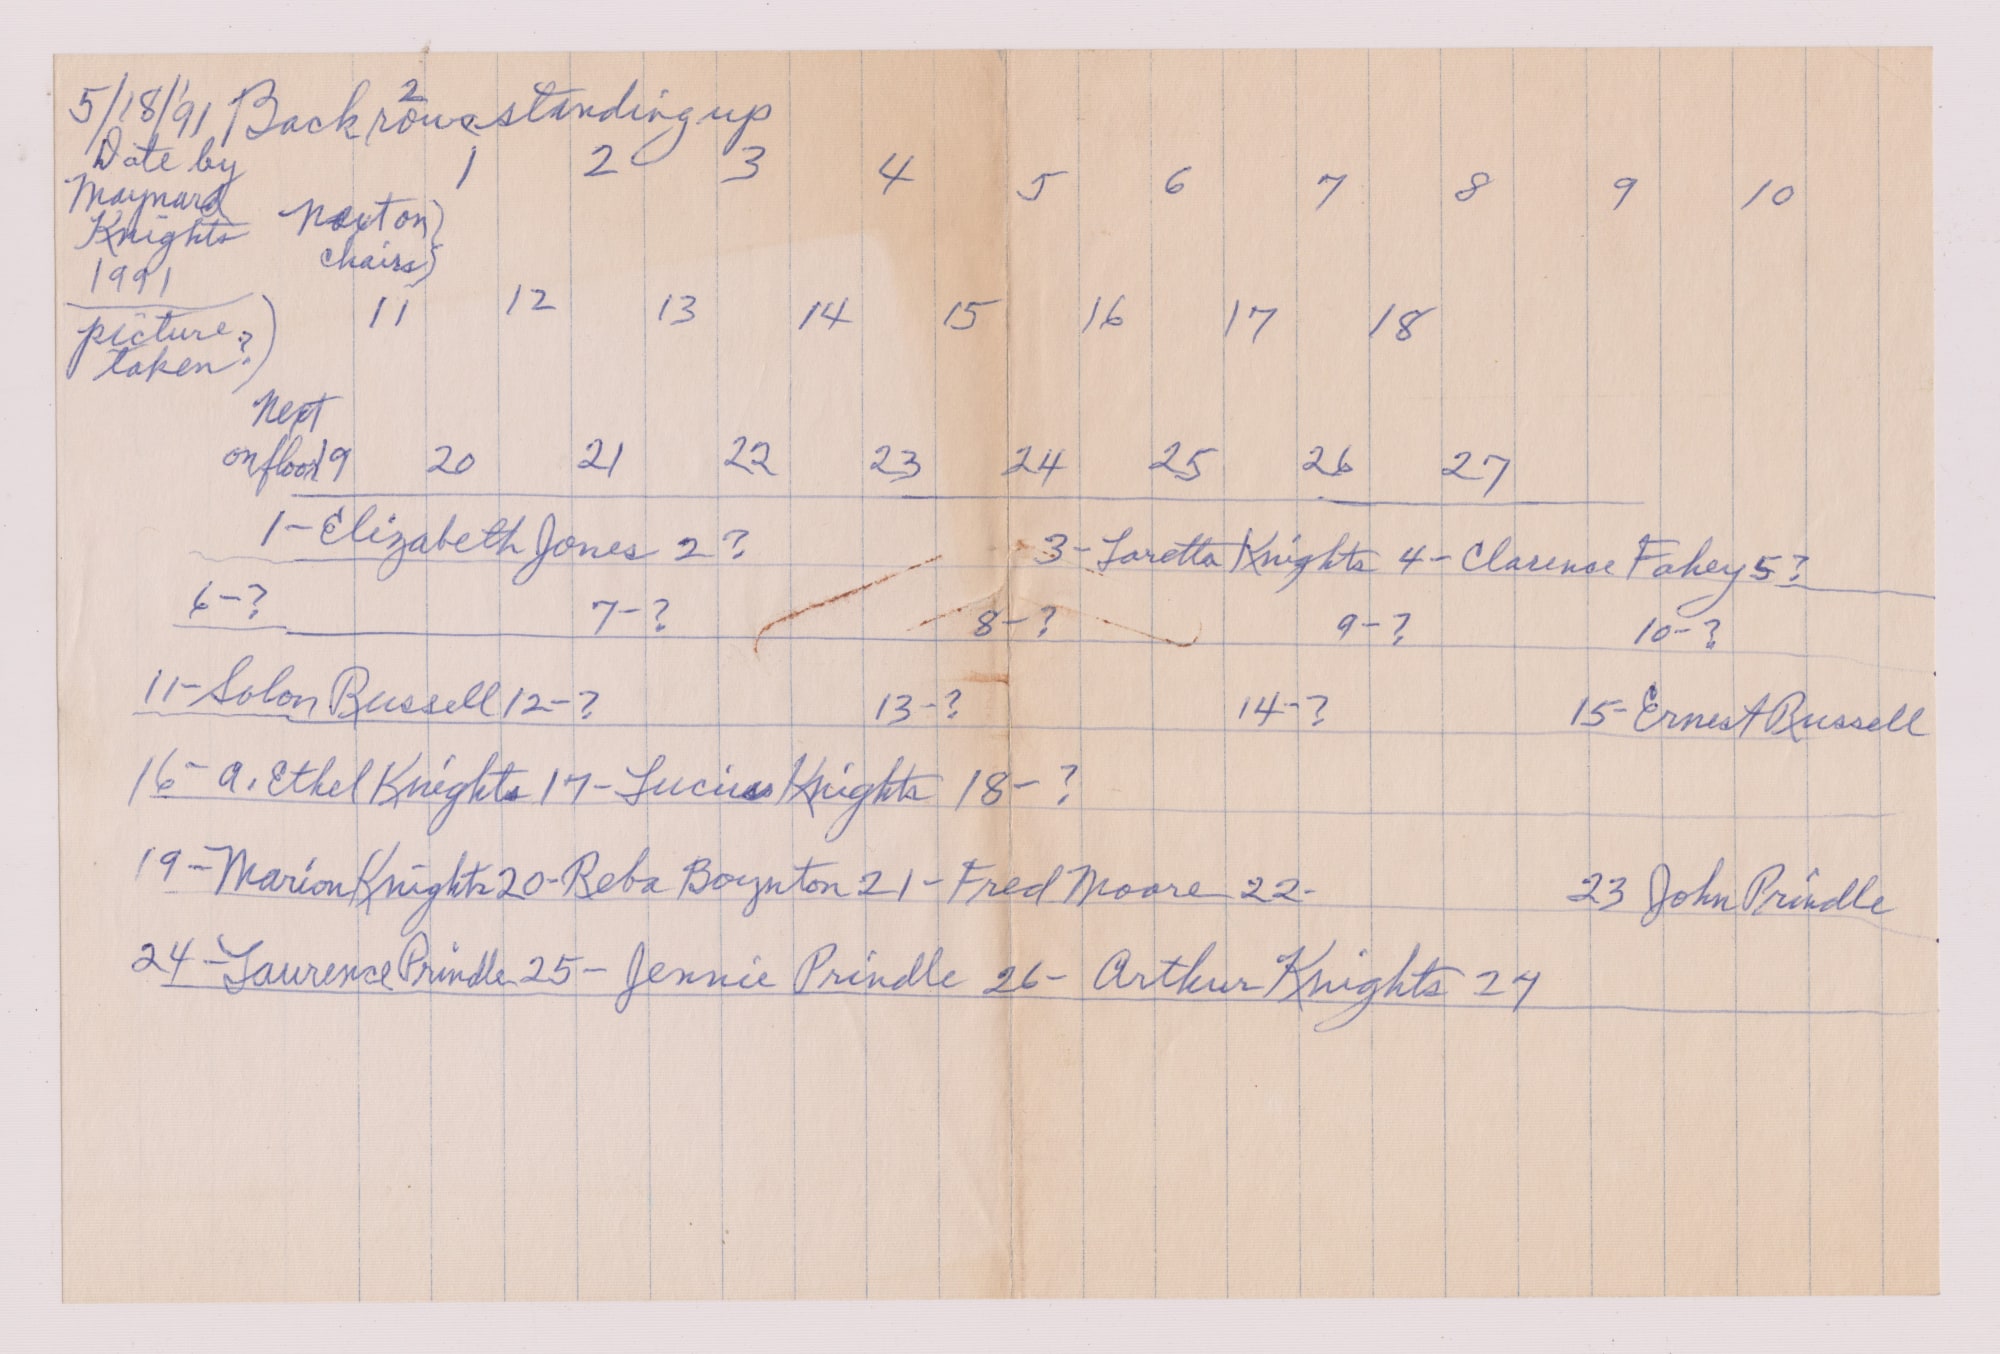 5/18/'91 Back 2 rows standing up
Date by
Maynard
Knights
1991
picture ?
taken ?
1 2 3 4 5 6 7 8 9 10
Next on
chairs
11 12 13 14 15 16 17 18
Next
on floor 19 20 21 22 23 24 25 26 27
1- Elizabeth Jones 2 ? 3- Loretta Knights 4- Clarence Fahey 5 ?
6-? 7-? 8-? 9-? 10-?
11- Solon Russell 12-? 13-? 14-? 15- Ernest Russell
16- A. Ethel Knights 17- Lucius Knights 18- ?
19- Marion Knights 20- Reba Boynton 21- Fred Moore 22- 23 John Prindle
24- Laurence Prindle 25- Jennie Prindle 26- Arthur Knights 27